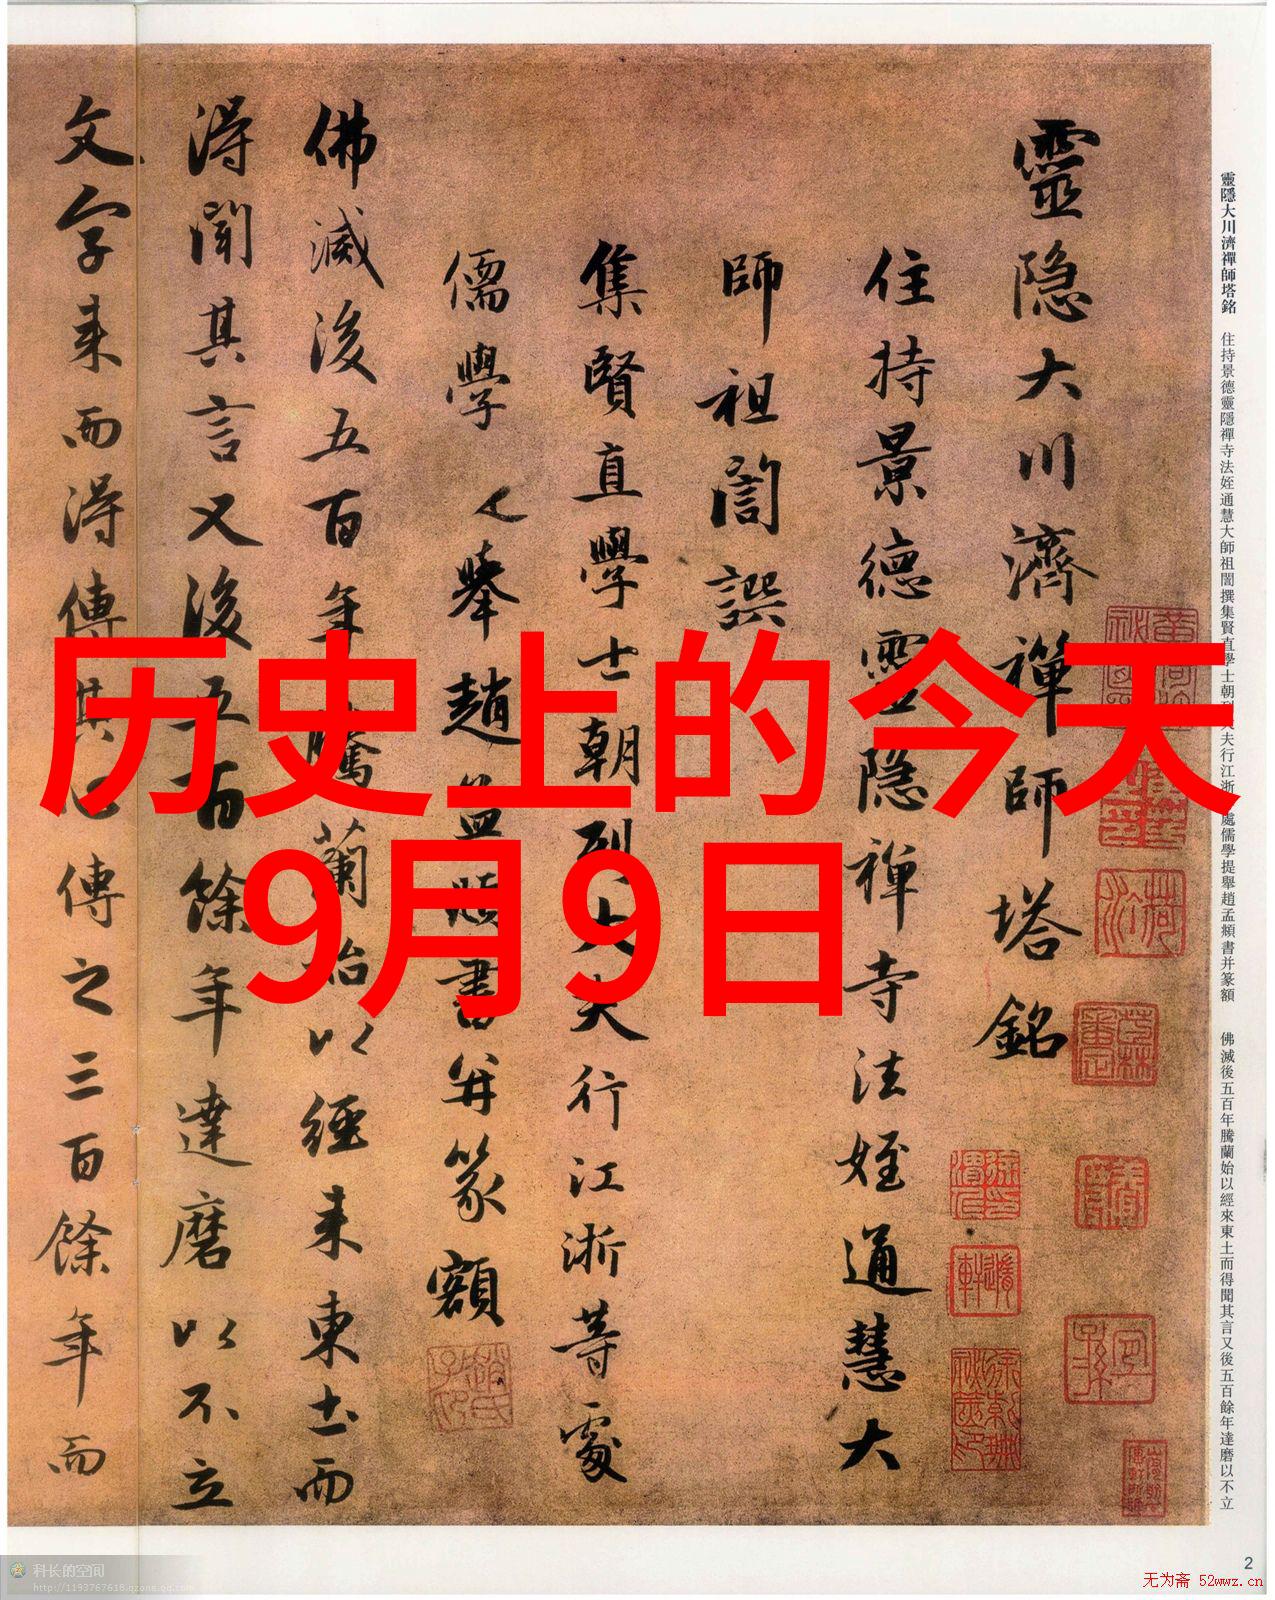 历史上的今天
9月9日
靈隐大川濟禪師塔銘
住持景德靈隐禅寺法姪通慧大
師祖誾譔
集賢直學士朝列大夫行江浙等處
儒學提舉趙孟頫書并篆額
佛滅後五百年騰蘭始以經来東土而
得聞其言又後五百餘年達磨以不立
文字来而得傳其心傳之三百餘年而
靈隱大川濟禪師塔銘 住持景德靈隱禪寺法姪通慧大師祖誾撰集賢直學士朝列大夫行江浙等處儒學提舉趙孟頫書并篆額 佛滅後五百年騰蘭始以經來東土而得聞其言又後五百餘年達磨以不立
2
科长的空间
http://1193767618.qzone.qq.com
无为斋 52wwz.cn